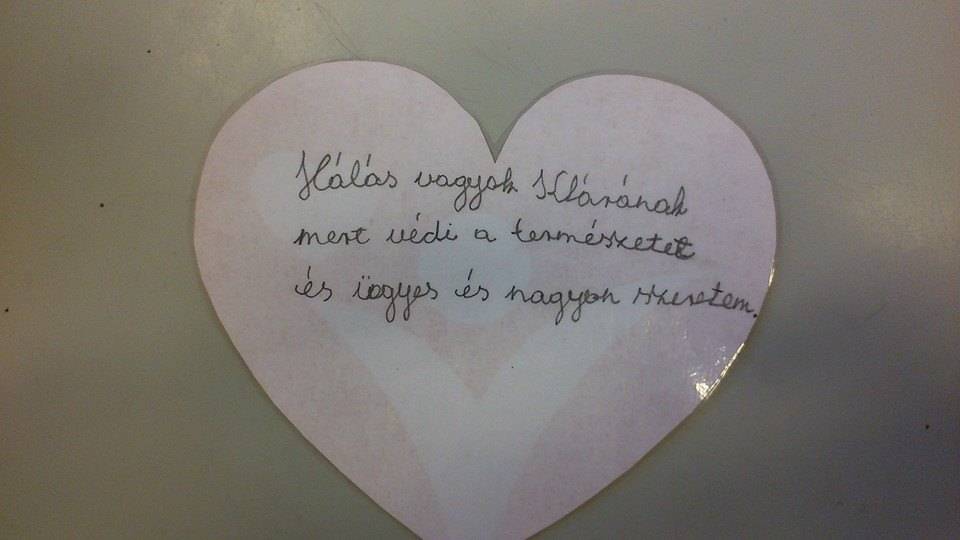 Hálás vagyok Klárának
mert védi a természetet
és ügyes és nagyon szeretem.